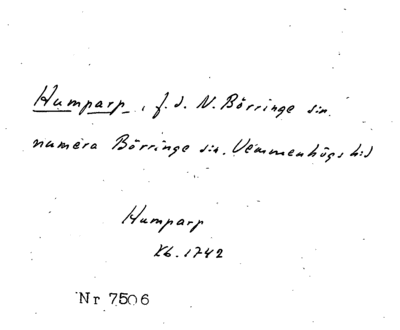 Humparp, f. d. N. Börringe sn.
numera Börringe sn. Vemmenhögs hd
Humparp
Kb. 1742
Nr 7506